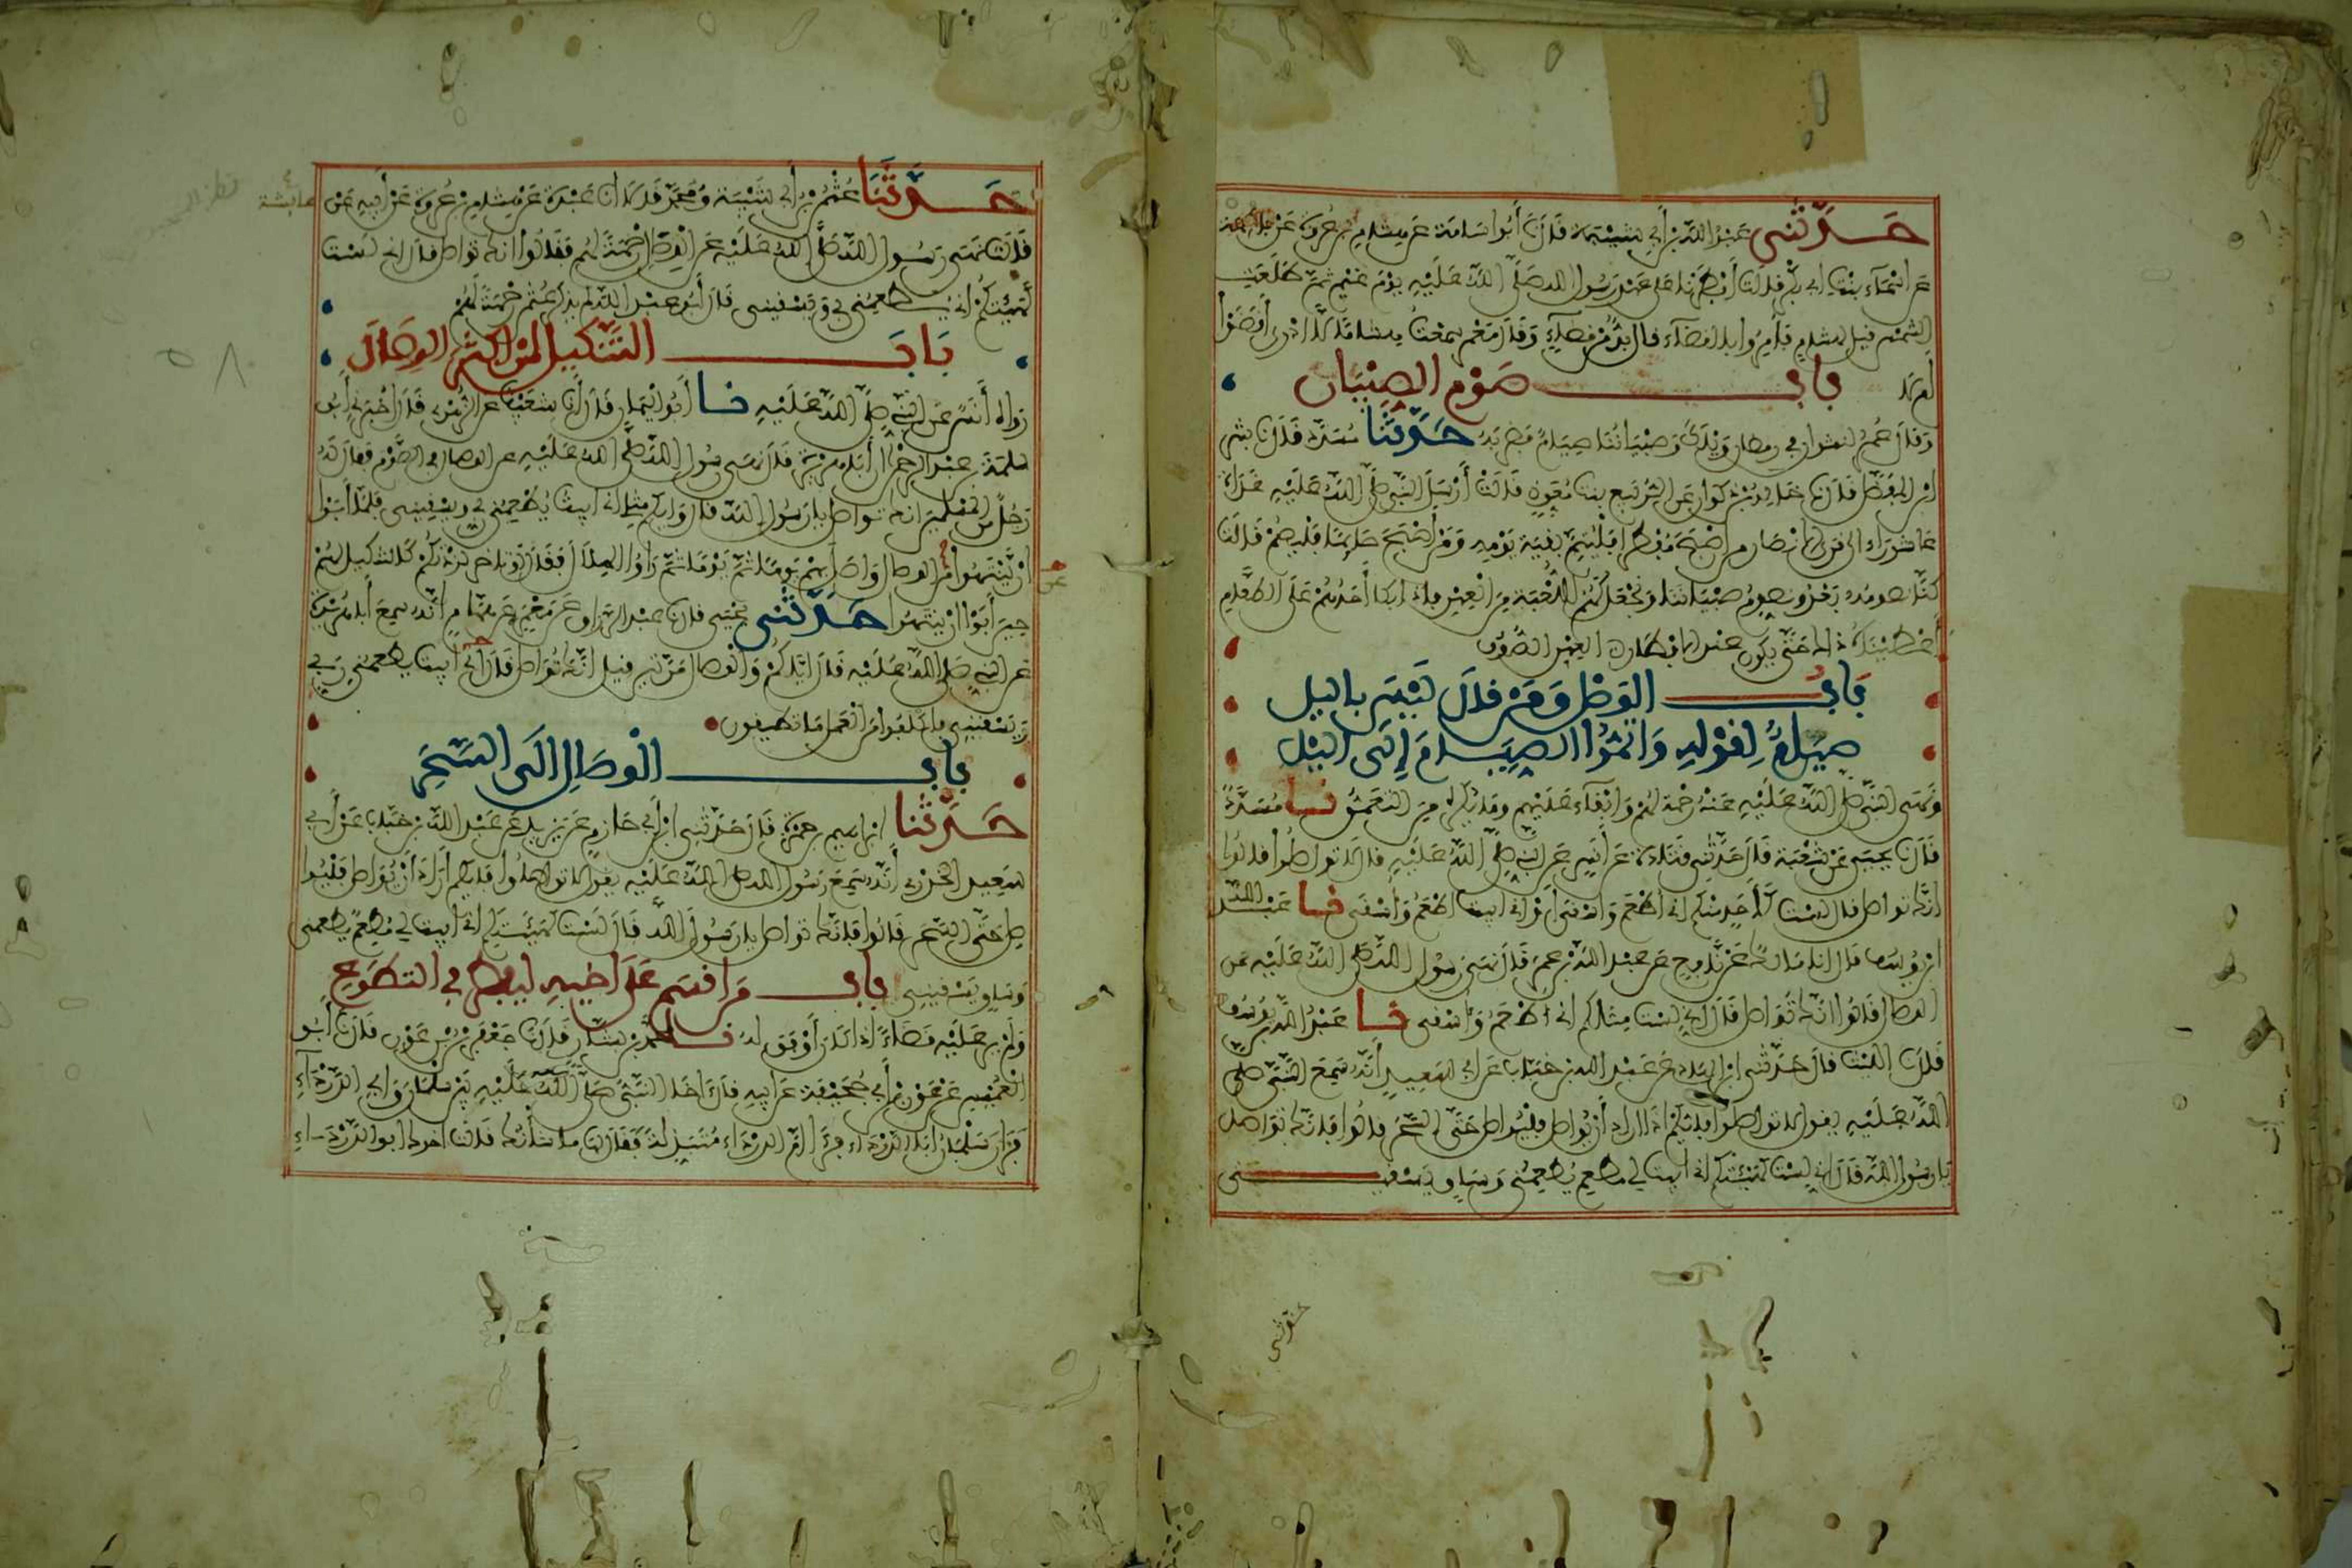 حَدَّثَنِي عَبْدُ اللَّهِ بْنُ أَبِي شَيْبَةَ قَالَ نَا أَبُو أُسَامَةَ عَنْ هِشَامِ بْنِ عُرْوَةَ عَنْ فَاطِمَةَ
عَنْ أَسْمَاءَ بِنْتِ أبي بَكْرٍ قَالَتْ أَفْطَرْنَا عَلَى عَهْدِ رَسُولِ اللهِ صَلَّى اللَّهُ عَلَيْهِ يَوْمَ غَيْمٍ ثُمَّ طَلَعَتِ
الشَّمْسُ قيل لهشام فَأُمِرُوا بالقضاء قال بُدٌّ مِنْ قَضَاءٍ وَقَالَ مَعْمَر سَمِعْتُ هشاما لا أدري أَقَضَوْا
أم لا
بابُ صَوْمِ الصِّبْيَانِ
وَقَالَ عُمَرُ لنشوان في رمضان وَيْلَكَ وَصِبْيَانُنَا صِيَامٌ فَضَرَبَهُ حَدَّثَنَا مُسَدَّد قَالَ نا بشر
ابن المُفَضَّل قَالَ نا خَالِدُ بْنُ ذَكْوَانَ عَنِ الرُّبَيِّعِ بنت مُعَوِّذٍ قَالَتْ أَرْسَلَ النَّبِيُّ صَلَّى اللَّهُ عَلَيْهِ غَدَاةَ
عَاشُورَاءَ إلى قرى الأنصار من أَصْبَحَ مُفْطِرًا فَلْيُتِمَّ بَقِيَّةَ يَوْمِهِ وَمَنْ أَصْبَحَ صَائِمًا فَلْيَصُمْ قَالَتْ
كُنَّا نصومه بَعْدُ ونُصَوِّمُ صِبْيَانَنَا وَنَجْعَلُ لَهُمُ اللُّعْبَةَ مِنَ الْعِهْنِ فإذا بكا أَحَدُهُمْ عَلَى الطَّعَامِ
أَعْطَيْنَاهُ ذاك حَتَّى يكون عند الإفطار العِهْنُ الصُّوفُ
بَابُ الوِصَالِ وَمَنْ قَالَ لَيْسَ باليل
صِيَامٌ لِقَوْلِهِ وَأَتِمُّوا الصِّيَامَ إِلَى اليْلِ
وَنَهَى النَّبِيُّ صَلَّى اللَّهُ عَلَيْهِ عَنْهُ رَحْمَةً لَهُمْ وَإِبْقَاءً عَلَيْهِمْ وما يُكْرَهُ مِنَ التَّعَمُّقِ نا مُسَدَّدٌ
قَالَ نا يَحْيَى عَنْ شُعْبَةَ قَالَ حَدَّثَنِي قَتَادَةُ عَنْ أَنَسٍ عَنِ النَّبِيِّ صَلَّى اللَّهُ عَلَيْهِ قال لا تواصلوا قالوا
إنَّكَ تواصل قال لَسْتُ كَأَحَدٍ مِنْكُمْ إني أُطْعَمُ وَأُسْقَى أَوْ إني أبيت أُطْعَمُ وَأُسْقَى نا عَبْدُ اللَّهِ
ابْنُ يُوسُفَ قال أنا مَالِكٌ عَنْ نَافِعٍ عَنْ عبد اللَّهِ بْنِ عُمَرَ قَالَ نَهَى رَسُولُ اللَّهِ صَلَّى اللَّهُ عَلَيْهِ عَنِ
الوصال قَالُوا إنَّكَ تُوَاصِلُ قَالَ إِنِّي لَسْتُ مِثْلَكُمْ إني أُطْعَمُ وَأُسْقَى نا عَبْدُ اللَّهِ بْنُ يُوسُفَ
قَالَ نا اللَّيْثُ قال حَدَّثَنِي ابن الهَادِ عَنْ عَبْدِ اللهِ بْنِ خَبَّابٍ عَنْ أَبِي سَعِيدٍ أَنَّهُ سَمِعَ النَّبِيَّ صَلَّى
اللَّهُ عَلَيْهِ يقول لا تُوَاصِلُوا فَأَيُّكُمْ إذا أراد أَنْ يُوَاصِلَ فَلْيُوَاصِلْ حَتَّى السَّحَرِ قالوا فَإِنَّكَ تُوَاصِلُ
يا رسول اللَّهِ قَالَ إني لَسْتُ كَهَيْئَتِكُمْ إني أبيت لي مطعم يُطْعِمُنِي وَسَاقٍ يَسْقِينِي
حَدَّثَنَا عُثْمَانُ بْنُ أَبِي شَيْبَةَ وَمُحَمَّدٌ قَالَا نا عَبْدَةُ عَنْ هِشَامِ بْنِ عُرْوَةَ عَنْ أَبِيهِ عَنْ
عائشة
قَالَتْ نَهَى رَسُولُ اللَّهِ صَلَّى اللَّهُ عَلَيْهِ عَنِ الْوِصَالِ رَحْمَةً لَهُمْ فَقَالُوا إنك تواصل قال إني لَسْتُ
كَهَيْئَتِكُمْ إني يُطْعِمُنِي رَبِّي وَيَسْقِينِي قَالَ أَبُو عبد اللَّهِ لم يذكر عُثْمَانُ رَحْمَةً لَهُمْ
بَابُ التَّنْكِيلِ لمَنْ أَكْثَرَ الوِصَالَ
رَوَاهُ أَنَسٌ عَنِ النَّبِيِّ صَلَّى اللَّهُ عَلَيْهِ نا أَبُو اليَمَانِ قَالَ أنا شُعَيْبٌ عن الزُّهْرِيِّ قَالَ أَخْبَرَنِي أَبُو
سَلَمَةَ بن عبد الرَّحْمَنِ أَنَّ أَبَا هُرَيْرَةَ قَالَ نهى رسول اللَّهِ صَلَّى اللَّهُ عَلَيْهِ عن الوصال في الصَّوْمِ فقال لَهُ
رَجُلٌ مِنَ المُسْلِمِينَ إنك تواصل يا رَسُولَ اللَّهِ قال وَأَيُّكُمْ مِثْلِي إني أبيت يُطْعِمُنِي رَبِّي وَيَسْقِينِي فَلَمَّا أَبَوْا
أَنْ يَنْتَهُوا عَنِ الوصال وَاصَلَ بِهِمْ يَوْمًا ثُمَّ يَوْمًا ثُمَّ رَأَوُا الهِلَالَ فَقَالَ لَوْ تأخر لَزِدْتُكُمْ كَالتنكيل لَهُمْ
حِينَ أَبَوْا أَنْ يَنْتَهُوا حَدَّثَنِي يَحْيَى قال نا عبد الرزاق عَنْ مَعْمَرٍ عَنْ هَمَّامٍ أَنَّهُ سَمِعَ أَبَا هُرَيْرَةَ
عَنِ النبي صَلَّى اللَّهُ عَلَيْهِ قَالَ إِيَّاكُمْ وَالْوِصَالَ مَرَّتَيْنِ قيل إنَّكَ تُوَاصِلُ قَالَ إني أبيت يطعمني رَبِّي
وَيَسْقِينِي فَاكْلَفُوا مِنَ الْعَمَلِ مَا تُطِيقُونَ
بابُ الْوِصَالِ إِلَى السَّحَرِ
حَدَّثَنَا إبراهيم بن حمزة قَالَ حَدَّثَنِي ابن أَبِي حَازِمٍ عَنْ يَزِيدَ عَنْ عَبْدِ اللَّهِ بْنِ خَبَّابٍ عَنْ أَبِي
سَعِيدٍ الخُدْرِيِّ أَنَّهُ سَمِعَ رَسُولَ اللَّهِ صَلَّى اللَّهُ عَلَيْهِ يقول لا تواصلوا فأيكم أَرَادَ أَنْ يُوَاصِلَ فَلْيُوَا
صِلْ حَتَّى السَّحَرِ قَالُوا فَإِنَّكَ تواصل يا رَسُولَ اللَّهِ قَالَ لَسْتُ كَهَيْئَتِكُمْ إني أبيت لي مُطْعِمٌ يُطْعِمُنِي
وَسَاقٍ يَسْقِينِي بابُ مَنْ أَقْسَمَ عَلَى أَخِيهِ لِيُفْطِرَ فِي التَّطَوُّعِ
وَلَمْ يَرَ عَلَيْهِ قَضَاءً إذا كان أَوْفَقَ لَهُ نا مُحَمَّدُ بْنُ بَشَّارٍ قَالَ نا جَعْفَرُ بْنُ عَوْنٍ قَالَ نا أَبُو
الْعُمَيْسِ عَنْ عَوْنِ بْنِ أَبِي جُحَيْفَةَ عَنْ أَبِيهِ قَالَ آخَا النَّبِيُّ صَلَّى اللَّهُ عَلَيْهِ بَيْنَ سَلْمَانَ وَأَبِي الدَّرْدَاءِ
فَزَارَ سَلْمَانُ أَبَا الدَّرْدَاءِ فَرَأَى أُمَّ الدَّرْدَاءِ مُتَبَذِّلَةً فَقَالَ لَهَا مَا شَأْنُكِ قَالَتْ أخوك أبو الدَّرْدَاءِ
حدثني